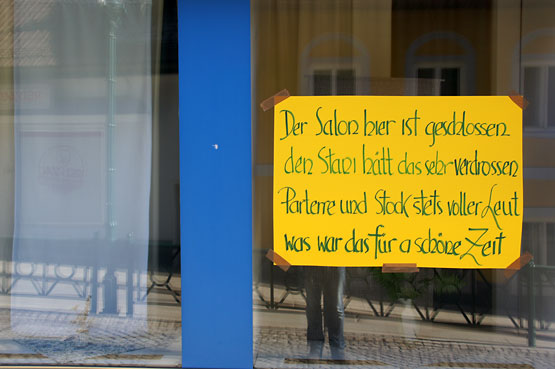 Der Salon hier ist geschlossen
den Stani hätt das sehr verdrossen
Parterre und Stock stets voller Leut
was war das für a schöne Zeit